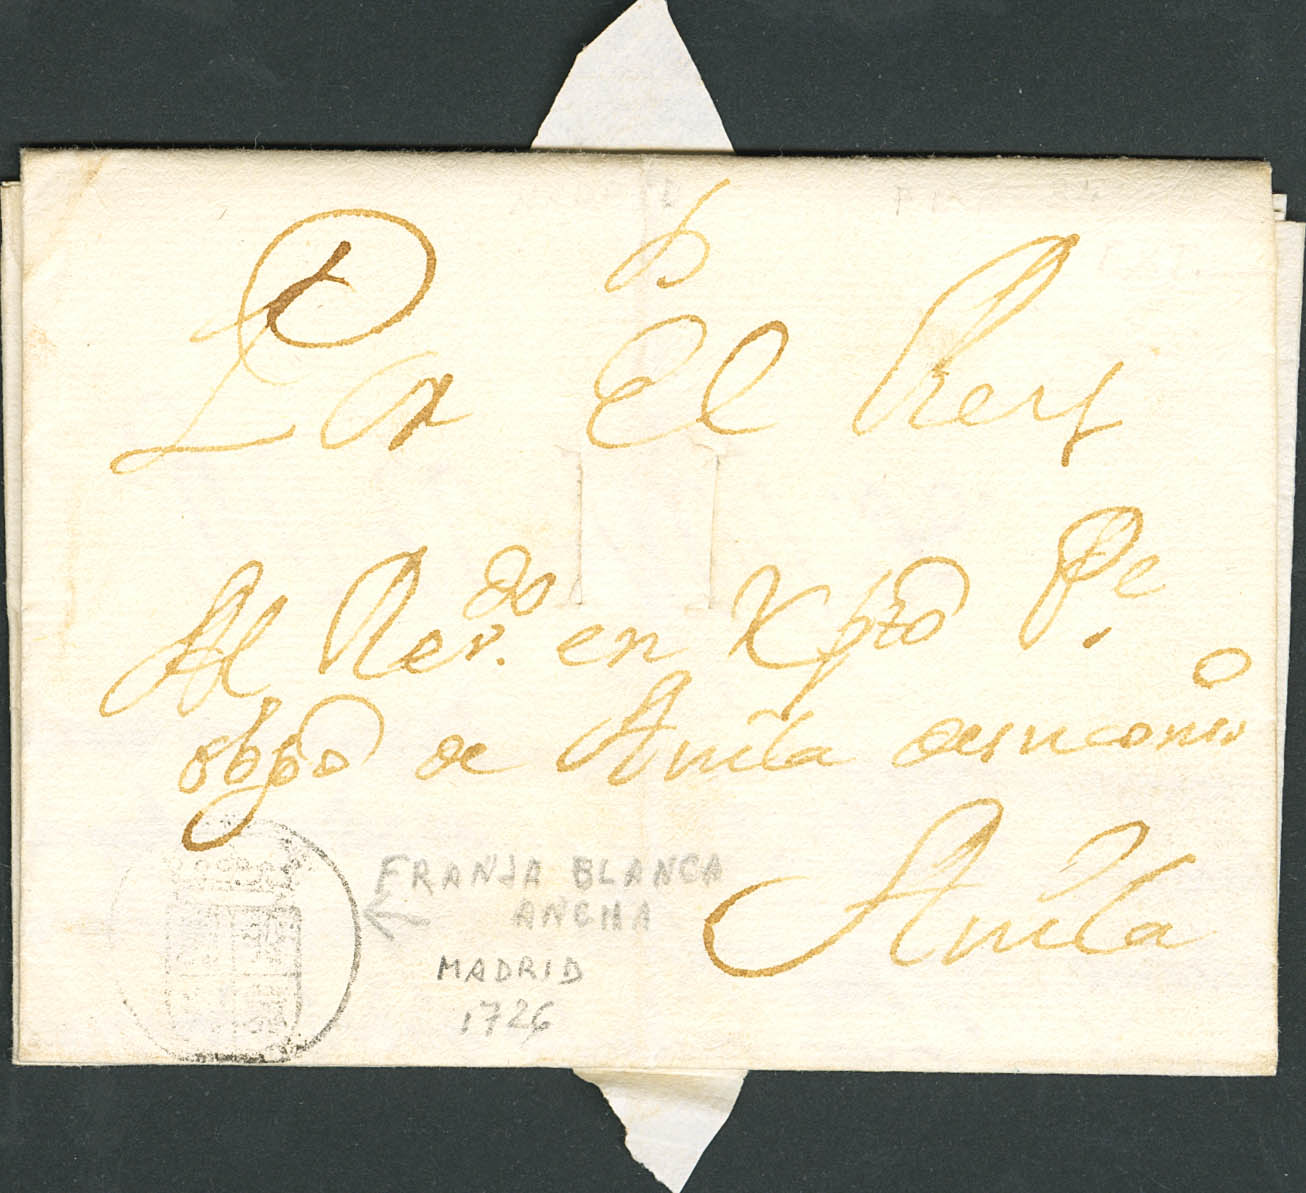 Por El Rey
Al Rev.do en Xpto Pe
obpo de Avila de su conso
Avila
FRANJA BLANCA
ANCHA
MADRID
1726